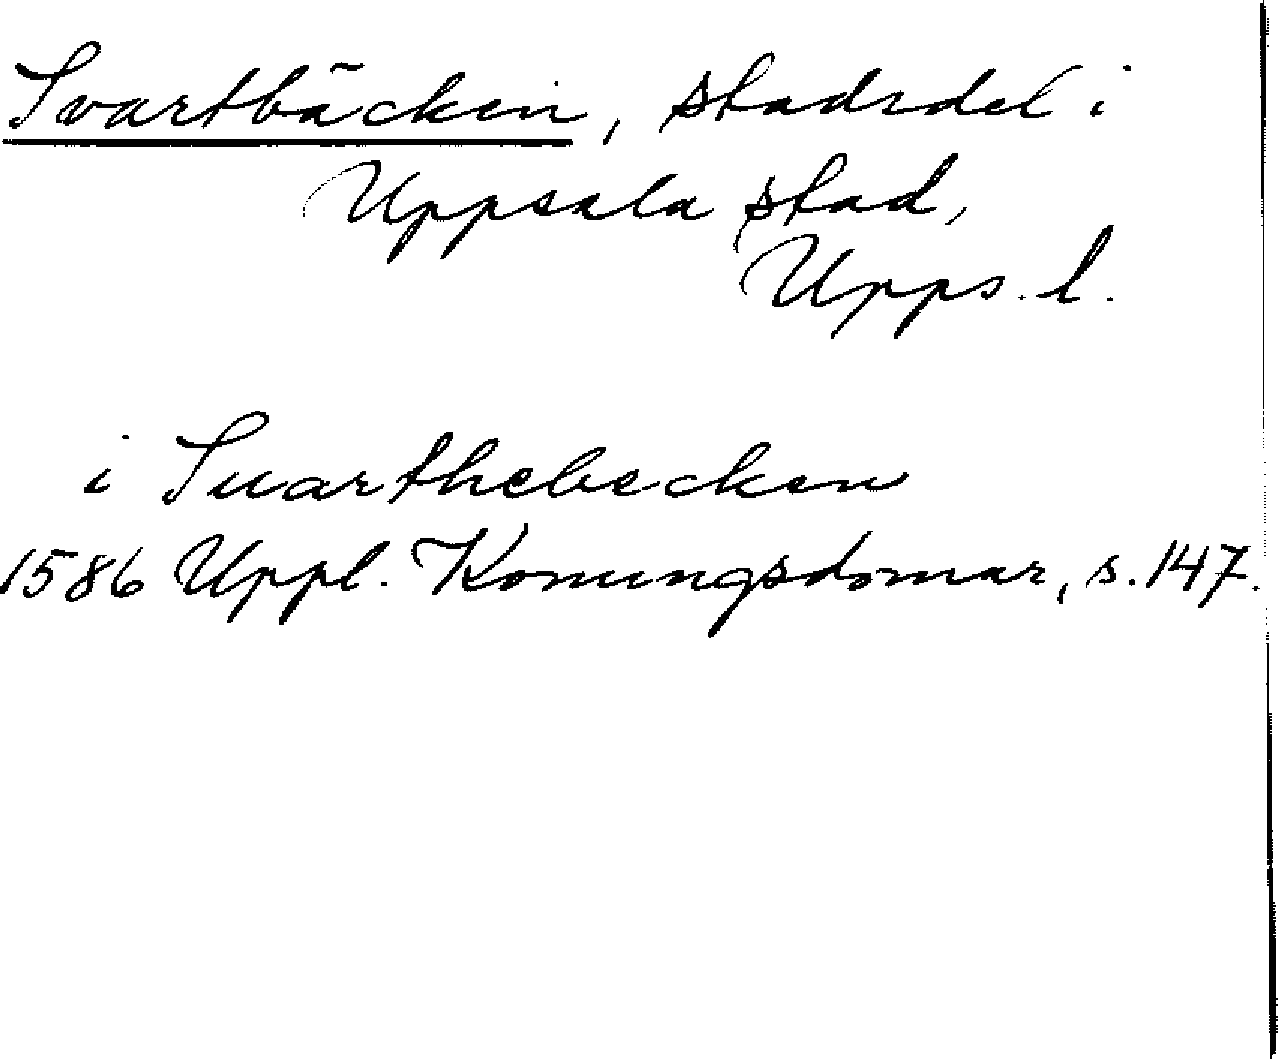 Svartbäcken, stadsdel i
Uppsala stad,
Upps. l.
i Suarthebecken
1586 Uppl. Konungsdomar, s. 147.